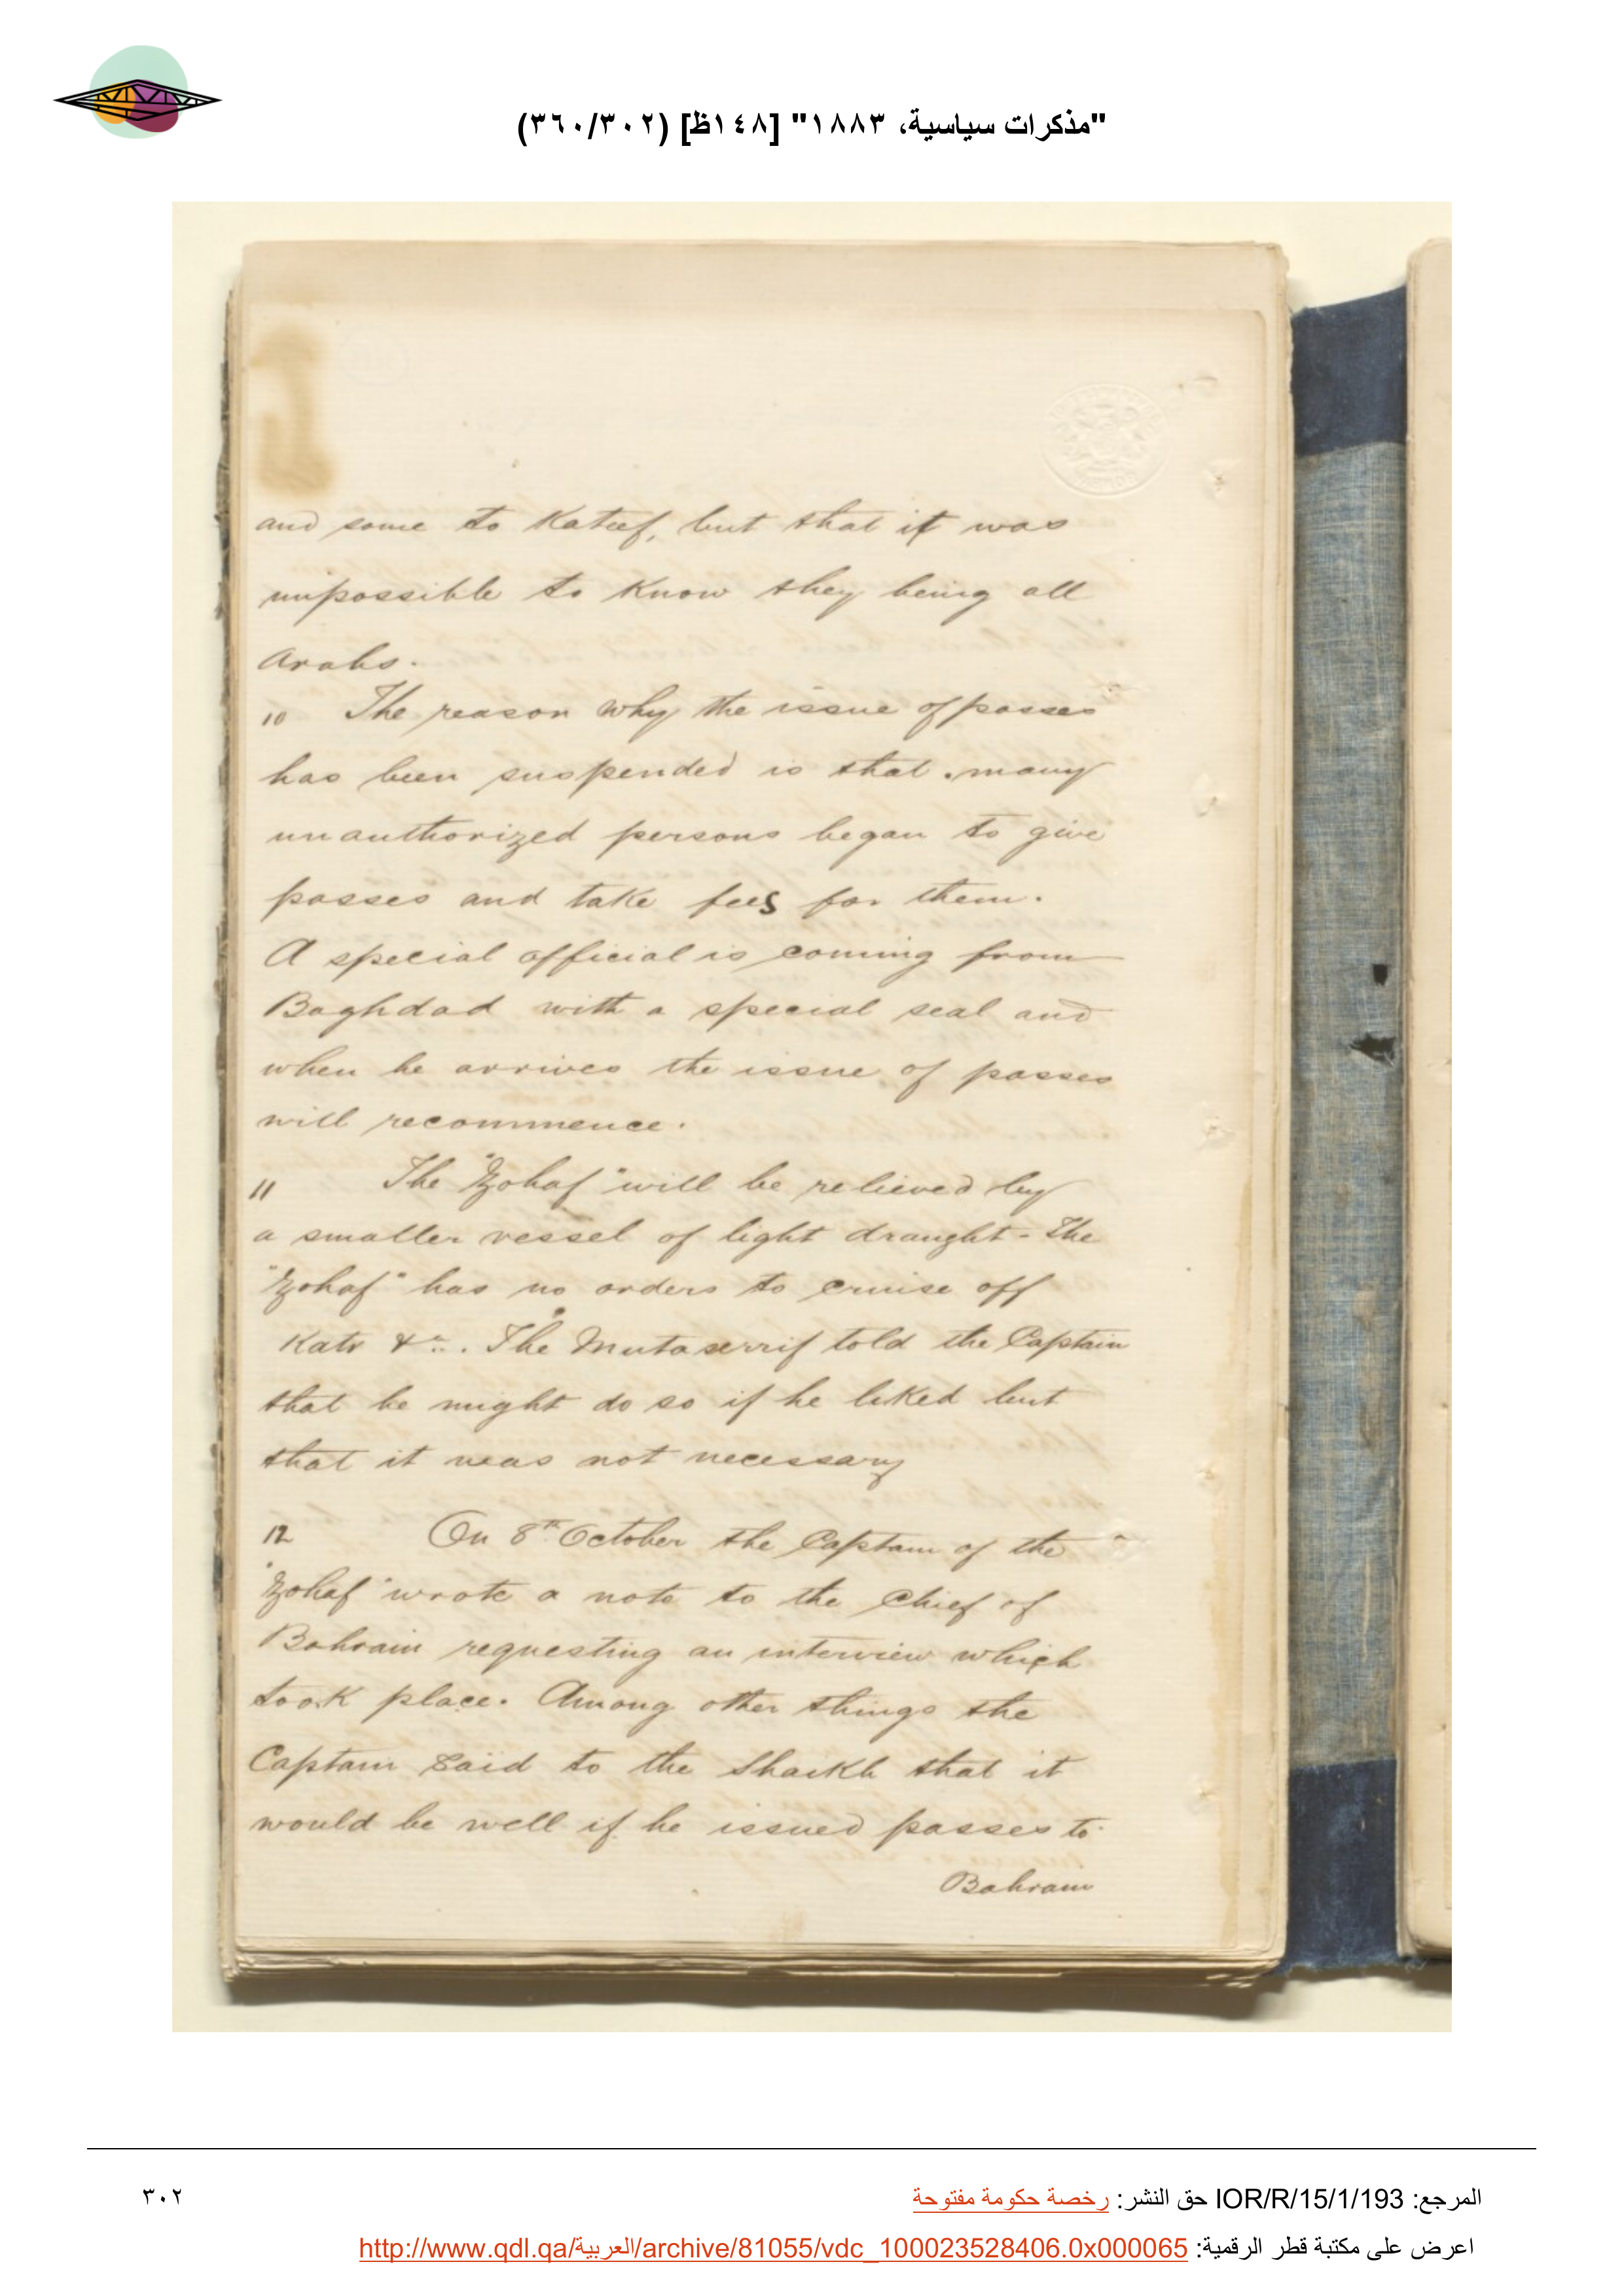 "مذكرات سياسية، ١٨٨٣" [١٤٨ظ] (٣٦٠/٣٠٢)
and some to Kateef, but that it was
impossible to know they being all
Arabs.
10 The reason why the issue of passes
has been suspended is that many
unauthorized persons began to give
passes and take fees for them.
A special official is coming from
Baghdad with a special seal and
when he arrives the issue of passes
will recommence.
11 The "Zohaf" will be relieved by
a smaller vessel of light draught - The
"Zohaf" has no orders to cruise off
Katr &c. The Mutaserrif told the Captain
that he might do so if he liked but
that it was not necessary
12 On 8th October the Captain of the
"Zohaf" wrote a note to the Chief of
Bahrain requesting an interview which
took place. Among other things the
Captain said to the Shaikh that it
would be well if he issued passes to
Bahrain
المرجع: IOR/R/15/1/193 حق النشر: رخصة حكومة مفتوحة
٣٠٢
اعرض على مكتبة قطر الرقمية: http://www.qdl.qa/العربية/archive/81055/vdc_100023528406.0x000065